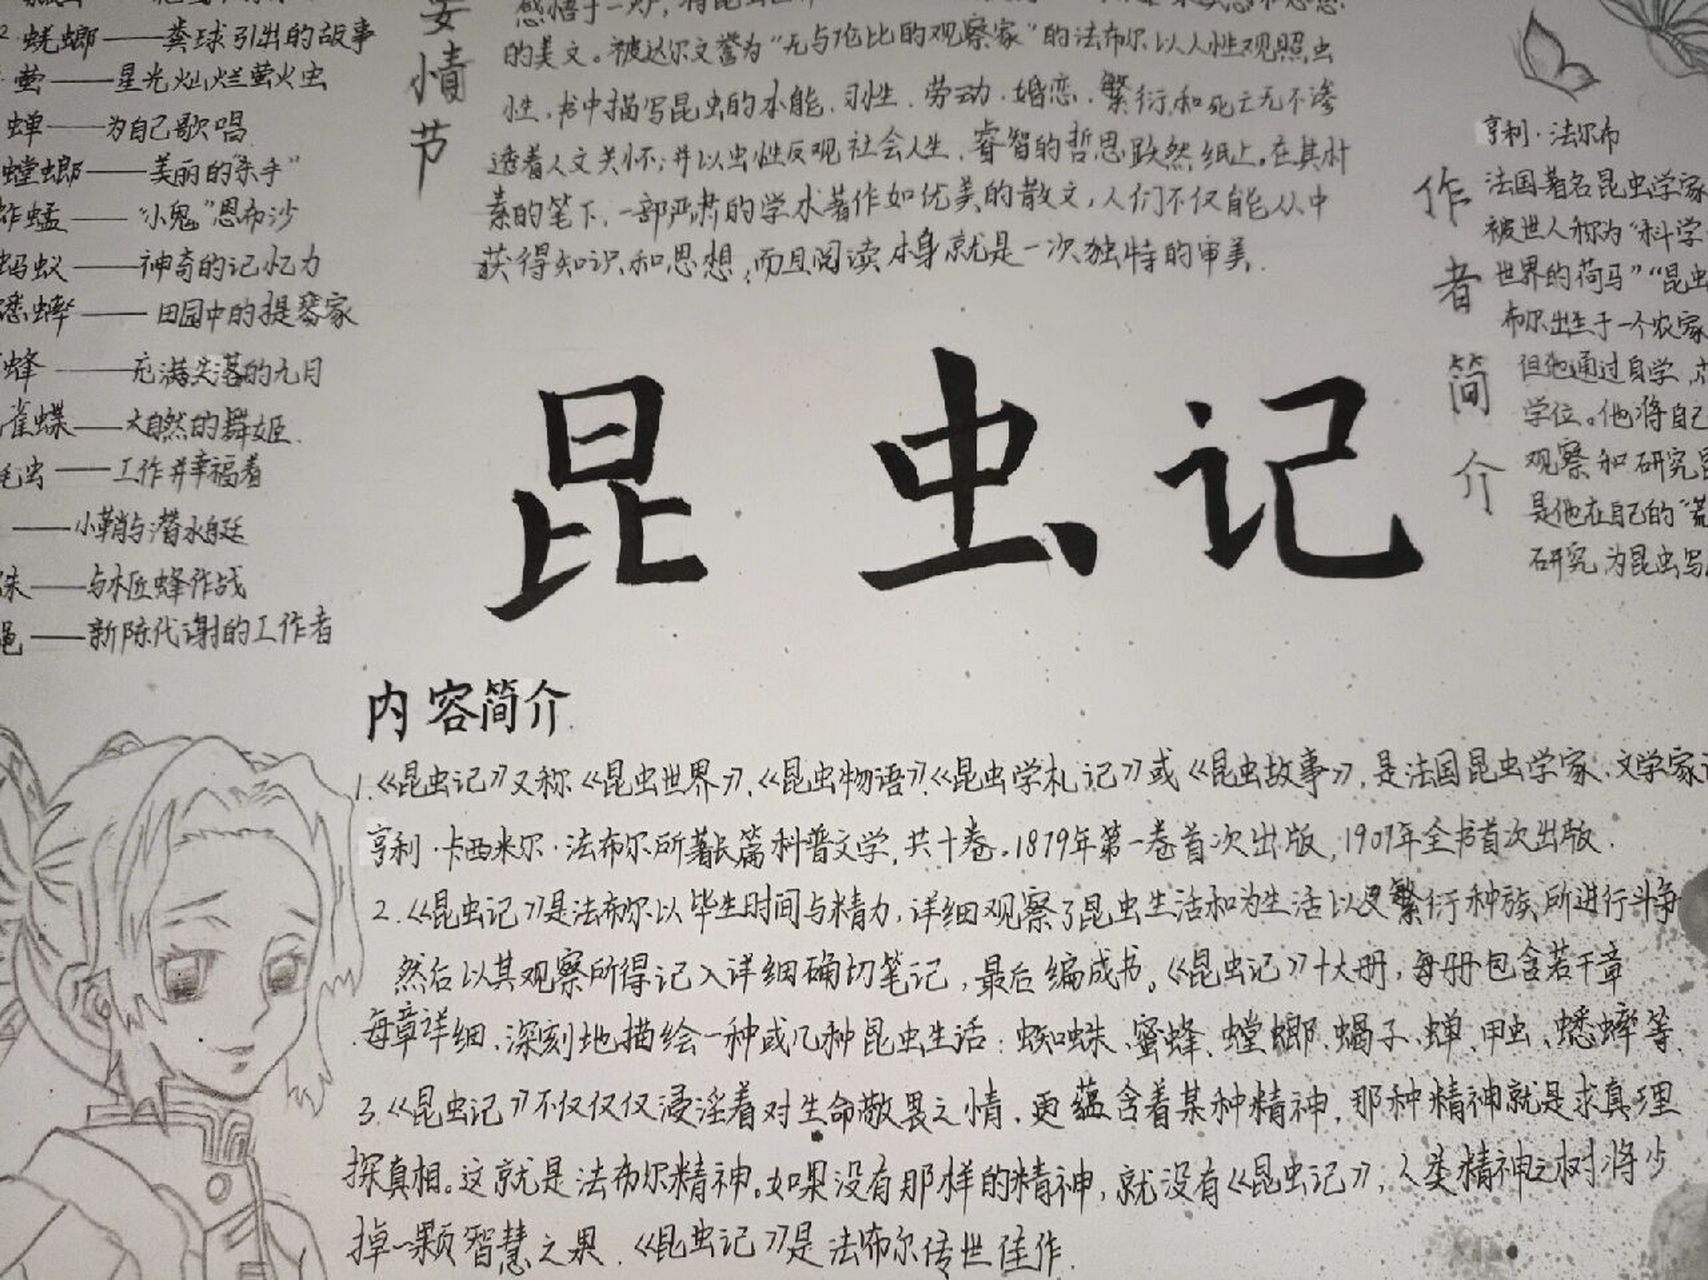 蜣螂——粪球引出的故事
萤——星光灿烂萤火虫
蝉——为自己歌唱
螳螂——美丽的"杀手"
蚱蜢——"小鬼"恩布沙
蚂蚁——神奇的记忆力
蟋蟀——田园中的提琴家
蜂——充满失落的九月
雀蝶——大自然的舞姬.
毛虫——工作并幸福着
——小鞘与潜水艇
蛛——与木匠蜂作战
蝇——新陈代谢的工作者
要情节
的美文。被达尔文誉为"无与伦比的观察家"的法布尔以人性观照虫
性,书中描写昆虫的本能、习性、劳动、婚恋、繁衍和死亡无不渗
透着人文关怀;并以虫性反观社会人生,睿智的哲思跃然纸上。在其朴
素的笔下,一部严肃的学术著作如优美的散文,人们不仅能从中
获得知识和思想,而且阅读本身就是一次独特的审美.
作者简介
亨利·法尔布
法国著名昆虫学家
被世人称为"科学
世界的荷马""昆虫
布尔出生于一个农家
但他通过自学,
学位。他将自己
观察和研究昆
是他在自己的"荒
研究,为昆虫写
昆虫记
内容简介
1.《昆虫记》又称《昆虫世界》、《昆虫物语》、《昆虫学札记》或《昆虫故事》,是法国昆虫学家、文学家
亨利·卡西米尔·法布尔所著长篇科普文学,共十卷。1879年第一卷首次出版,1907年全书首次出版.
2.《昆虫记》是法布尔以毕生时间与精力,详细观察了昆虫生活和为生活以及繁衍种族所进行斗争
然后以其观察所得记入详细确切笔记,最后编成书。《昆虫记》十大册,每册包含若干章
每章详细、深刻地描绘一种或几种昆虫生活:蜘蛛、蜜蜂、螳螂、蝎子、蝉、甲虫、蟋蟀等.
3.《昆虫记》不仅仅仅浸淫着对生命敬畏之情,更蕴含着某种精神,那种精神就是求真理
探真相。这就是法布尔精神。如果没有那样的精神,就没有《昆虫记》,人类精神之树将少
掉一颗智慧之果.《昆虫记》是法布尔传世佳作.